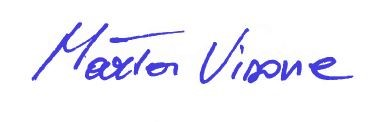 Marta Visone